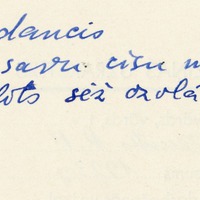 dancis
savu cīsu
lots sēž ozolā